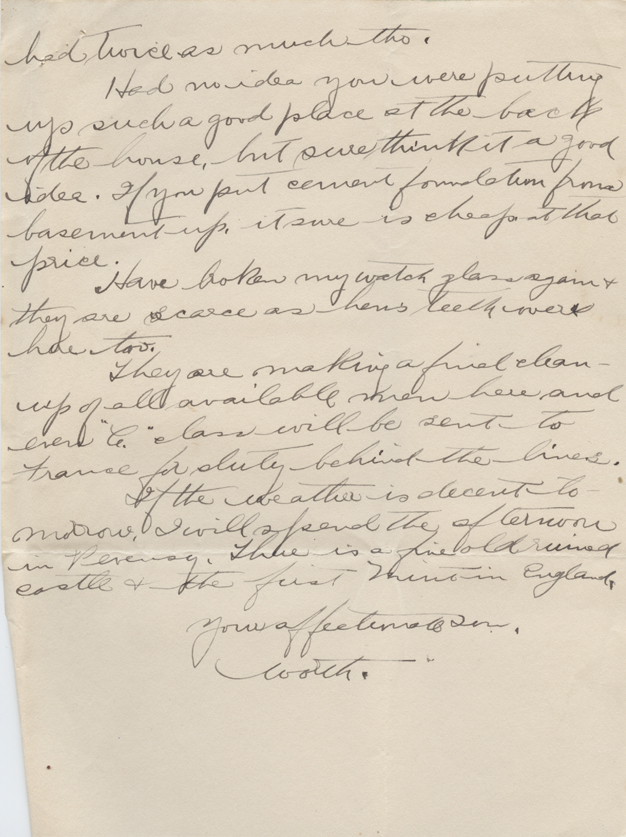 had twice as much tho.
Had no idea you were putting
up such a good place at the back
of the house, but sure think it a good
idea. If you put cement foundation from
basement up, it sure is cheap at that
price.
Have broken my watch glass again &
they are scarce as hens teeth over
here too.
They are making a final clean-
up of all available men here and
even "C." class will be sent to
France for duty behind the lines.
If the weather is decent to-
morrow, I will spend the afternoon
in Pevensy. There is a fine old ruined
castle & the first Mint in England.
Your affectionate son,
Worth.